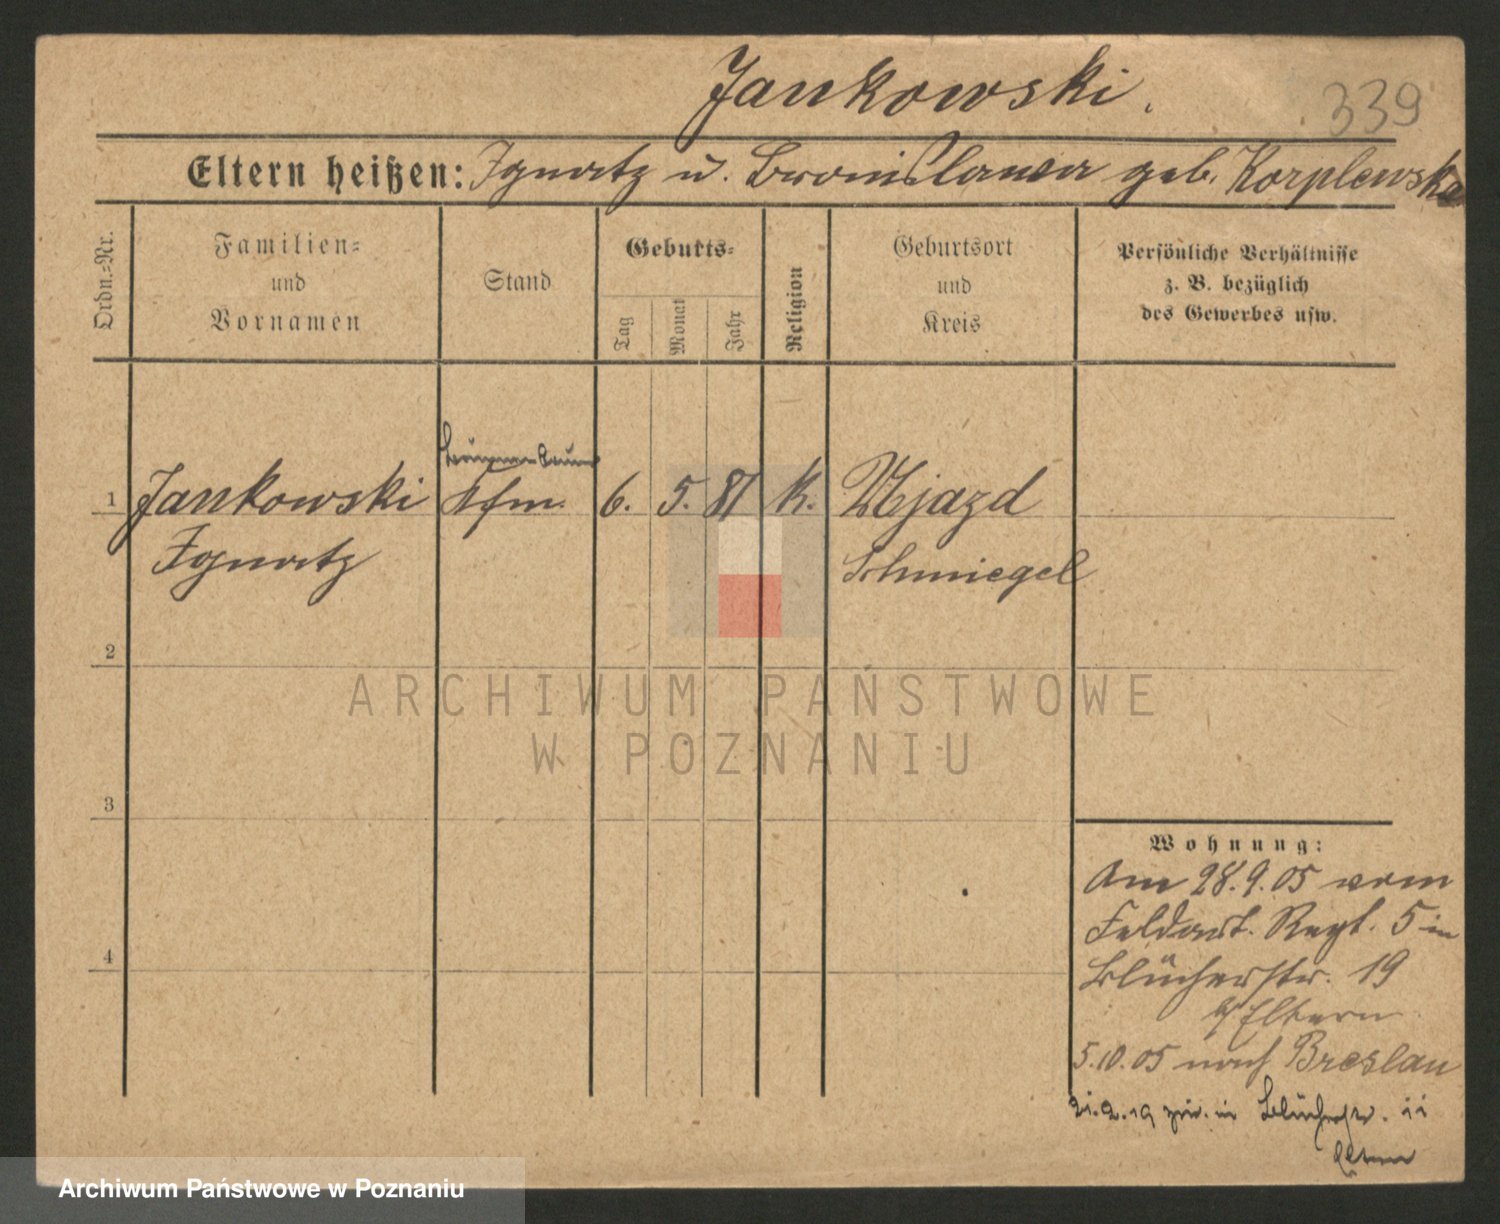 Jankowski.
339
Eltern heißen: Ignatz u. Bronislawa geb. Korplewska
Ordn.=Nr.
Familien=
und
Vornamen
Stand
Geburts=
Tag
Monat
Jahr
Religion
Geburtsort
und
Kreis
Persönliche Verhältnisse
z. B. bezüglich
des Gewerbes usw.
1 Jankowski Kfm. 6. 5. 81 K. Ujazd
Ignatz Schmiegel
2
3
4
ARCHIWUM PAŃSTWOWE
W POZNANIU
Wohnung:
Am 28.9.05 vom
Feldart. Regt. 5 in
Blücherstr. 19
b/ Eltern
5.10.05 nach Breslau
21.2.19 in Blücherstr. 11
Eltern
Archiwum Państwowe w Poznaniu